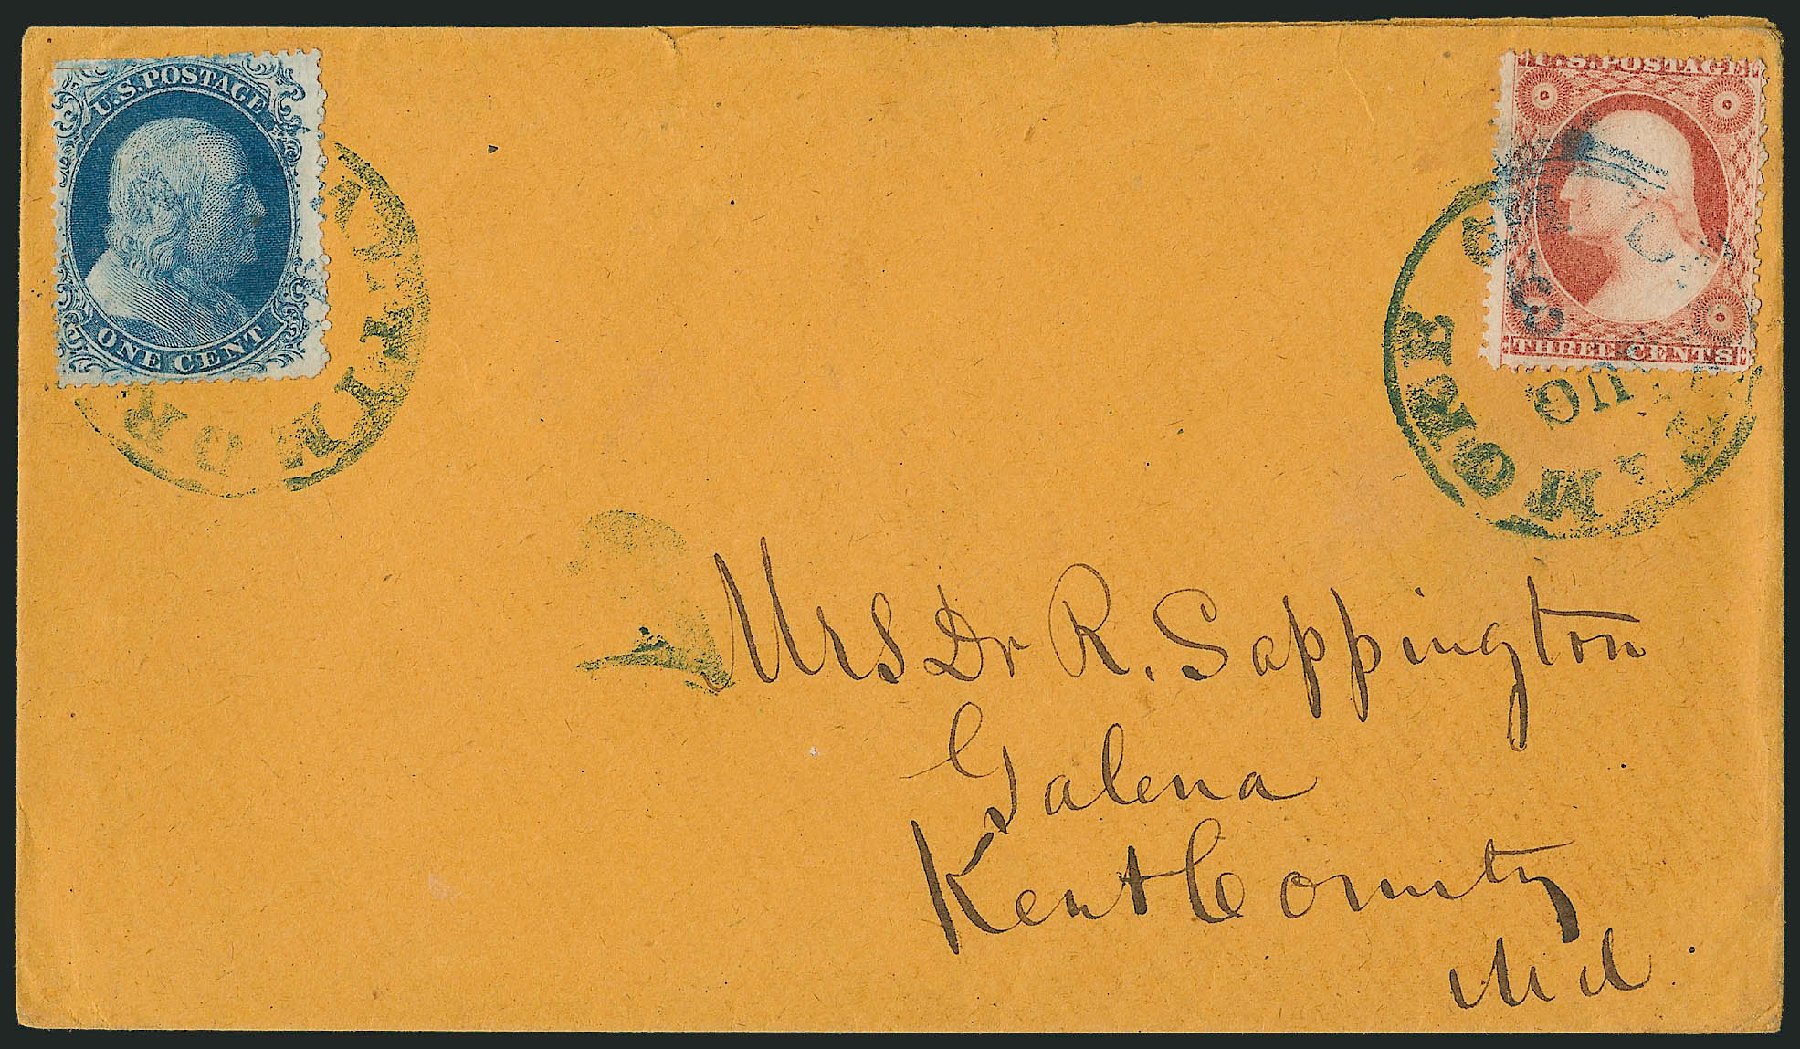 U.S. POSTAGE
ONE CENT
U.S. POSTAGE
THREE CENTS
AUG
Mrs Dr R. Sappington
Galena
Kent County
Md.